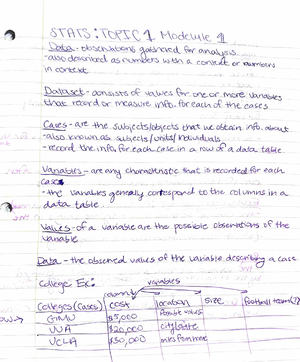 STATS: TOPIC 1 Modeule 1
Data - observations gathered for analysis.
-also described as numbers with a context or numbers
in context.
Dataset - consists of values for one or more variables
that record or measure info. for each of the cases
Cases - are the subjects/objects that we obtain info. about
-also known as subjects/units/individuals
-record the info. for each case in a row of a data table.
Variables - are any characteristic that is recorded for each
case
-the variables generally correspond to the columns in a
data table.
Values - of a variable are the possible observations of the
variable.
Data - the observed values of the variable describing a case
College Ex:
variables
Colleges (Cases) cost location size football team
Possible values
GMU $5,000
UVA $20,000 city/state
UCLA $30,000 miles from home